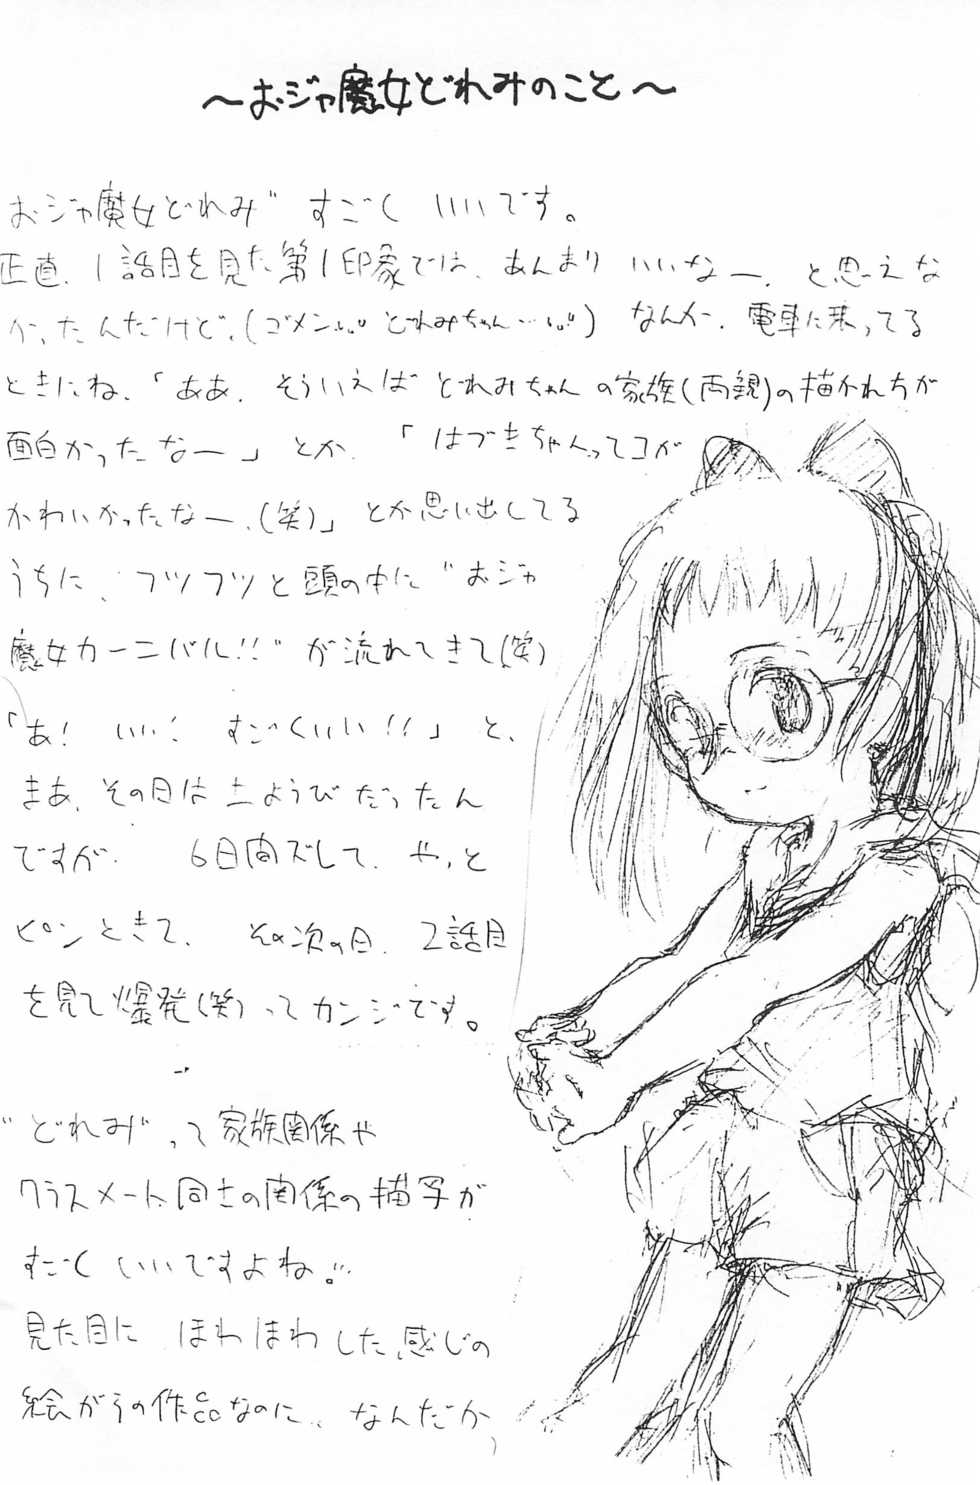 ～おジャ魔女どれみのこと～
おジャ魔女どれみ" すごく いいです。
正直、1話目を見た第1印象では、あんまり いいなー、と思えな
かったんだけど、(ゴメン… どれみちゃん…) なんか、電車に乗ってる
ときにね、「ああ、そういえば どれみちゃんの家族(両親)の描かれ方が
面白かったなー」とか、「はづきちゃんってコが
かわいかったなー、(笑)」とか思い出してる
うちに、フツフツと頭の中に"おジャ
魔女カーニバル!!"が流れてきて(笑)
「あ! いい! すごくいい!!」と、
まあ、その日は土ようびだったん
ですが、 6日間ズレて、やっと
ピンときて、 その次の日、2話目
を見て爆発(笑)ってカンジです。
"どれみ"って家族関係や
クラスメート同士の関係の描写が
すごく いいですよね。
見た目に ほわほわした感じの
絵がらの作品なのに、なんだか、